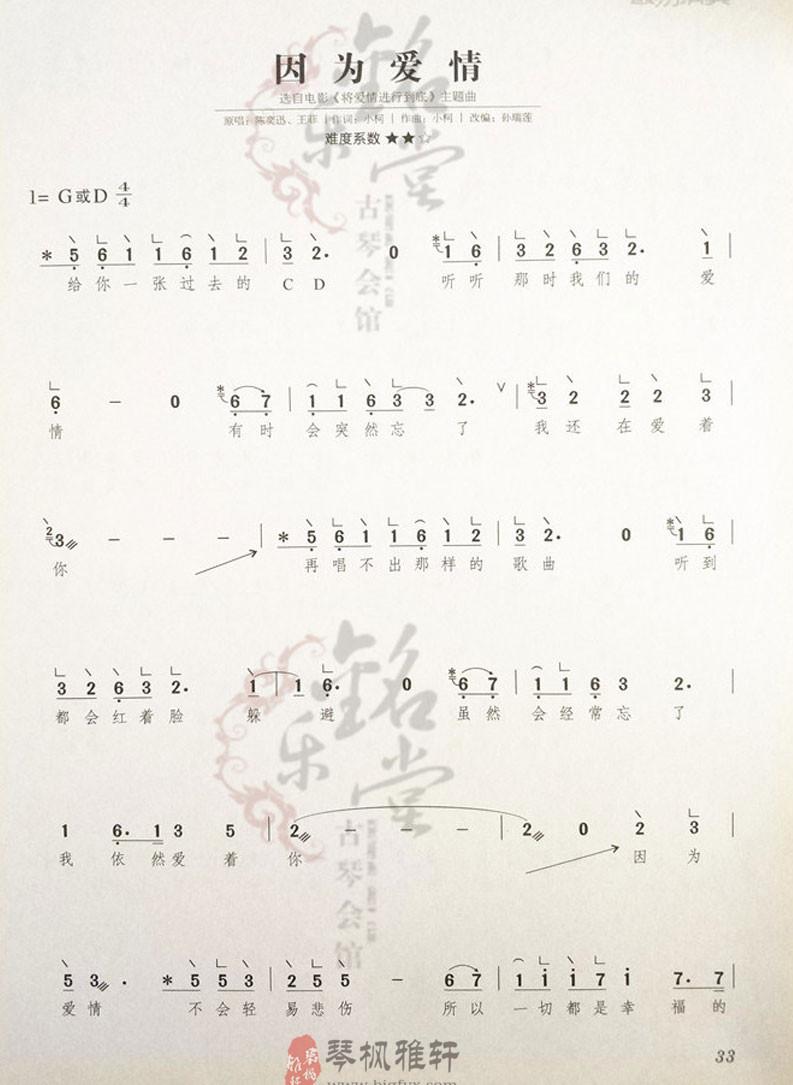 因为爱情
选自电影《将爱情进行到底》主题曲
原唱：陈奕迅、王菲 | 作词：小柯 | 作曲：小柯 | 改编：孙瑞莲
难度系数 ★★☆
1= G或D 4/4
* 5 6 1 1 6 1 2 | 3 2. 0 1 6 | 3 2 6 3 2. 1 |
给你一张过去的CD 听听那时我们的爱
6 - 0 6 7 | 1 1 6 3 3 2. ∨ | 3 2 2 2 3 |
情 有时会突然忘了 我还在爱着
2 3 - - - | * 5 6 1 1 6 1 2 | 3 2. 0 1 6 |
你 再唱不出那样的歌曲 听到
3 2 6 3 2. 1 | 1 6. 0 6 7 | 1 1 6 3 2. |
都会红着脸躲避 虽然会经常忘了
1 6. 1 3 5 | 2 - - - | 2 0 2 3 |
我依然爱着你 因为
5 3 . * 5 5 3 | 2 5 5 - 6 7 | 1 i i 7 i 7. 7 |
爱情 不会轻易悲伤 所以一切都是幸福的
33
銘
乐
堂
古琴会馆
銘
乐
堂
古琴会馆
琴枫雅轩